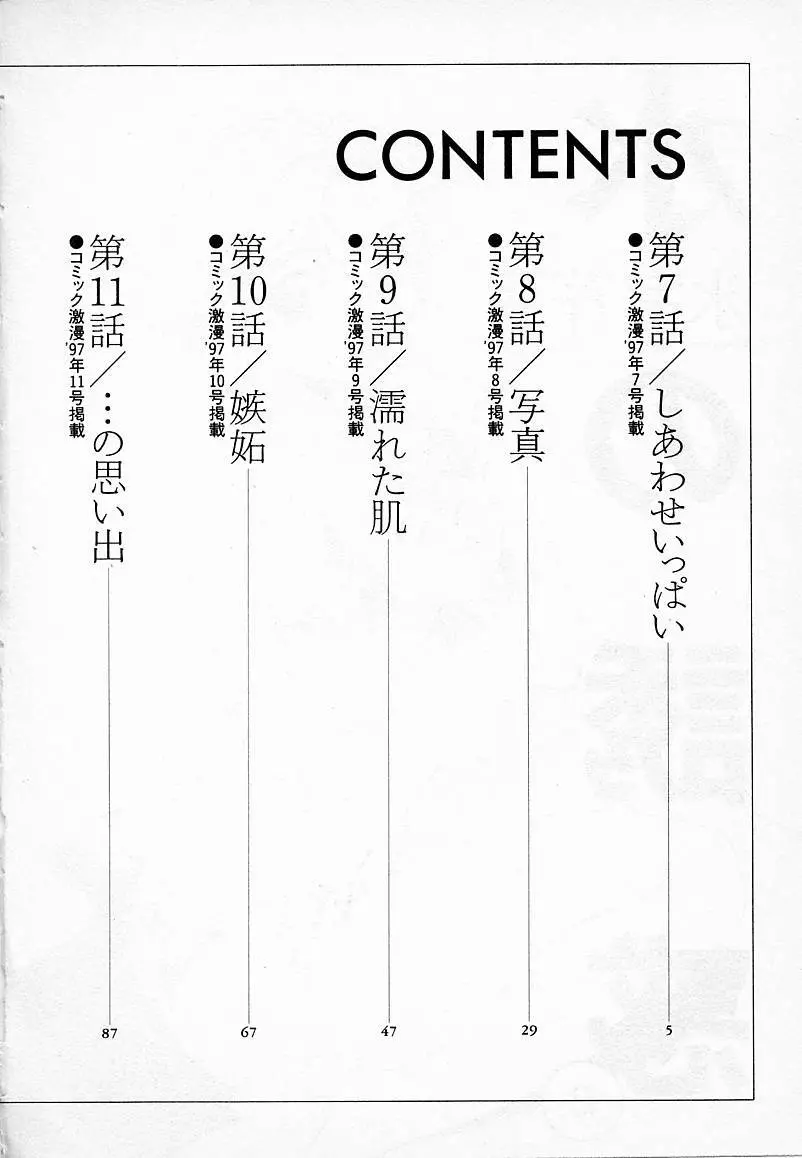 CONTENTS
第7話／しあわせいっぱい
●コミック激漫'97年7号掲載
5
第8話／写真
●コミック激漫'97年8号掲載
29
第9話／濡れた肌
●コミック激漫'97年9号掲載
47
第10話／嫉妬
●コミック激漫'97年10号掲載
67
第11話／…の思い出
●コミック激漫'97年11号掲載
87